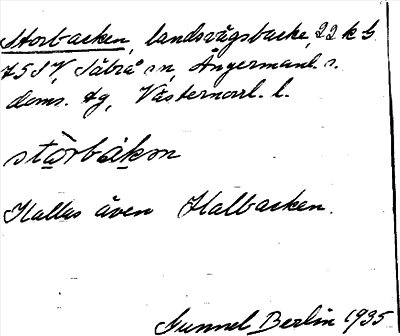 Storbacken, landsvägsbacke, 22 k b
75 SV, Säbrå sn, Ångermanl. s.
doms. tg, Västernorrl. l.
stòrbákən
Kallas även Halbacken.
Gunnel Berlin 1935